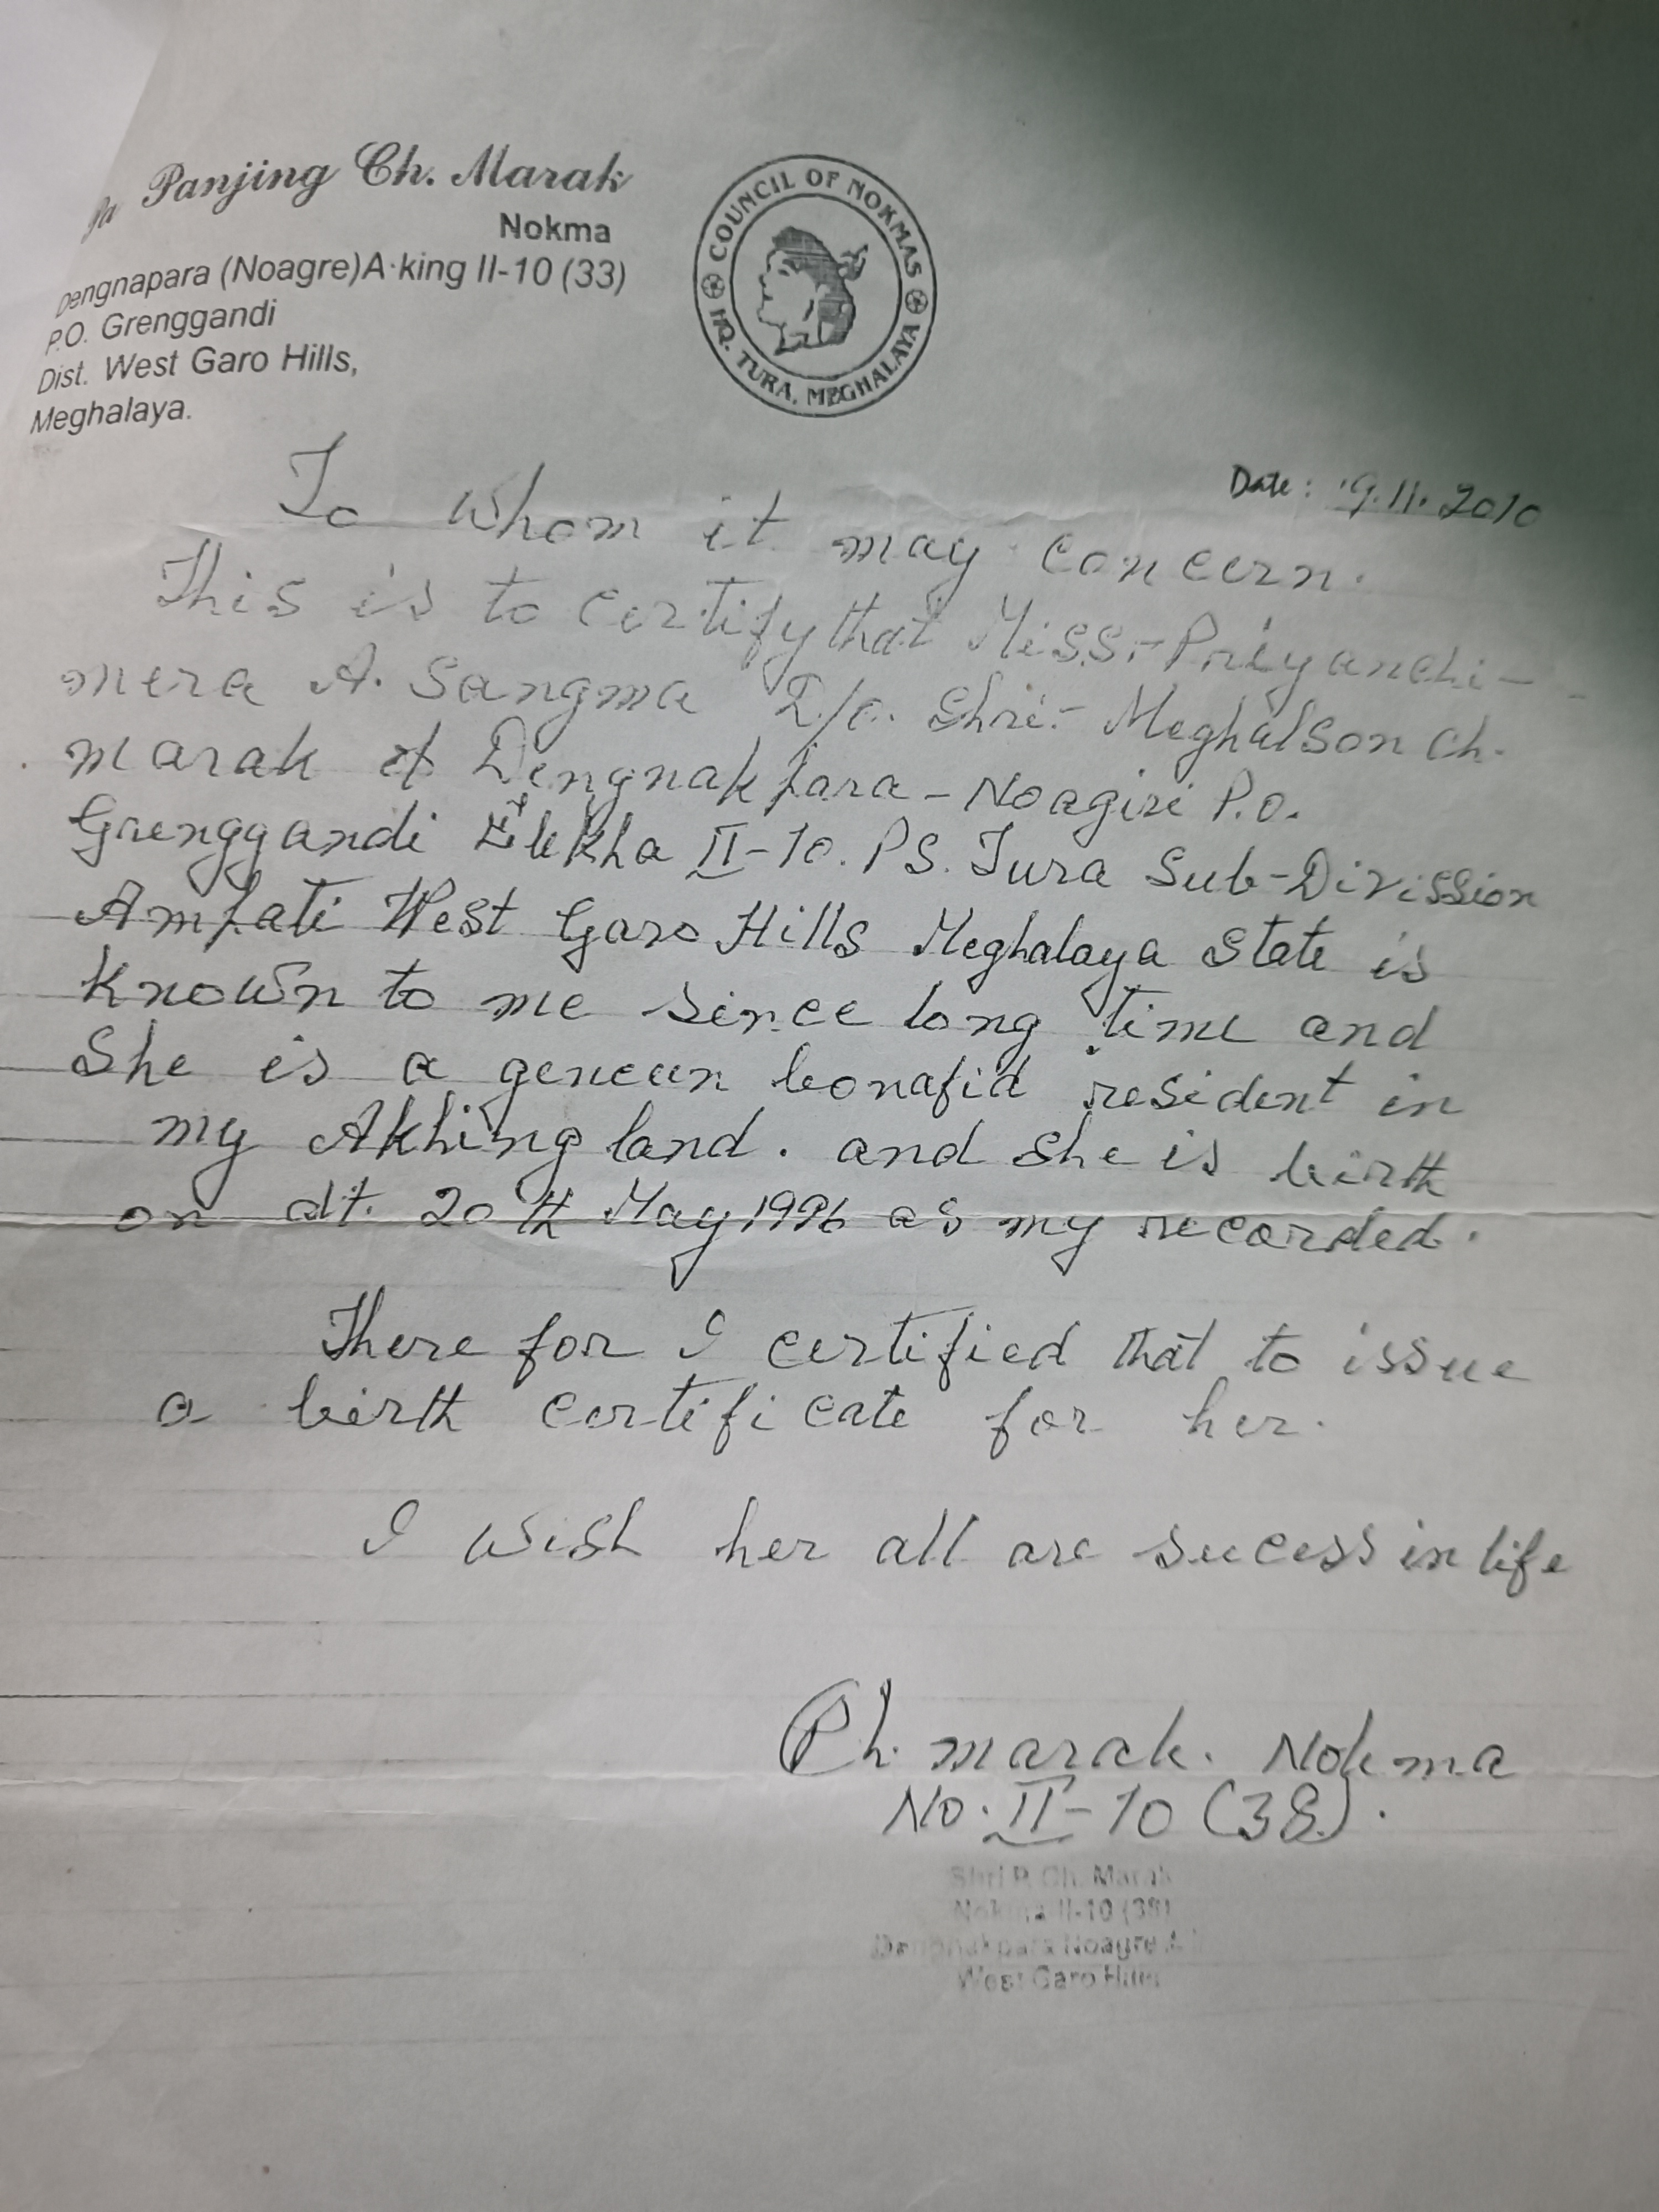 Panjing Ch. Marak
Nokma
Dengnapara (Noagre)A·king II-10 (33)
P.O. Grenggandi
Dist. West Garo Hills,
Meghalaya.
COUNCIL OF NOKMAS
HQ. TURA, MEGHALAYA
Date: 9.11.2010
To whom it may concern.
This is to certify that Miss:- Priyanchi-
mera A. Sangma D/o. Shri:- Meghalson ch.
marak of Dengnakpara - Noagiri P.O.
Grenggandi Elekha II-10. PS. Tura Sub-Divission
Ampati West Garo Hills Meghalaya State is
known to me since long time and
She is a geneun bonafid resident in
my Akhing land. and she is birth
on dt. 20th May 1996 as my recorded.
There for I certified that to issue
a birth certificate for her.
I wish her all are sucess in life
Ph. marak. Nokma
No. II-10 (38).
Shri P. Ch. Marak
Nokma II-10 (38)
Noagre
West Garo Hills